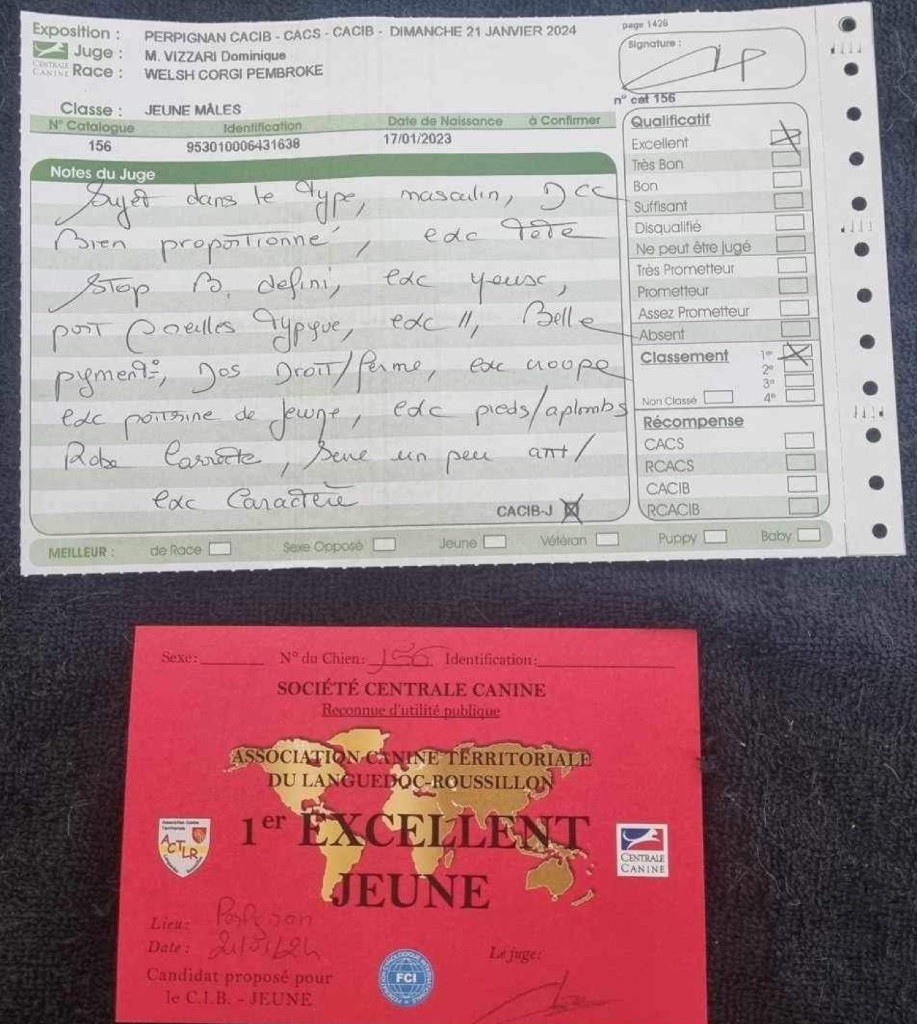 Exposition : PERPIGNAN CACIB - CACS - CACIB - DIMANCHE 21 JANVIER 2024
page 1426
CENTRALE CANINE
Juge : M. VIZZARI Dominique
Signature :
Race : WELSH CORGI PEMBROKE
Classe : JEUNE MÂLES
n° cat 156
N° Catalogue Identification Date de Naissance à Confirmer
156 953010006431638 17/01/2023
Notes du Juge
Sujet dans le Type, masculin, DCC
Bien proportionné, exc Tête
Stop B. defini, exc yeux,
port oreilles Typyque, exc //, Belle
pigment, Dos Droit/ferme, exc croupe
exc poitrine de jeune, exc pieds/aplombs
Robe Correcte, Serré un peu ant/
exc Caractère
CACIB-J
Qualificatif
Excellent
Très Bon
Bon
Suffisant
Disqualifié
Ne peut être jugé
Très Prometteur
Prometteur
Assez Prometteur
Absent
Classement 1er
2e
3e
Non Classé 4e
Récompense
CACS
RCACS
CACIB
RCACIB
MEILLEUR : de Race Sexe Opposé Jeune Vétéran Puppy Baby
Sexe: N° du Chien: 156 Identification:
SOCIÉTÉ CENTRALE CANINE
Reconnue d'utilité publique
ASSOCIATION CANINE TERRITORIALE
DU LANGUEDOC-ROUSSILLON
1er EXCELLENT
JEUNE
ACTLR
CENTRALE
CANINE
Lieu: Perpignan
Date: 21/01/24
Le juge:
Candidat proposé pour
le C.I.B. - JEUNE
FCI